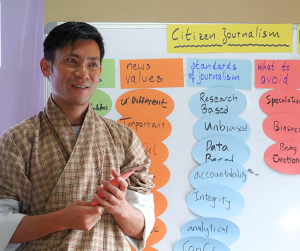 Citizen Journalism
news
values
standards
of journalism
what to
avoid
Different
Important
Research
Based
Unbiased
Data
Based
accountability
Integrity
analytical
Speculation
Biased
Being
Emotion